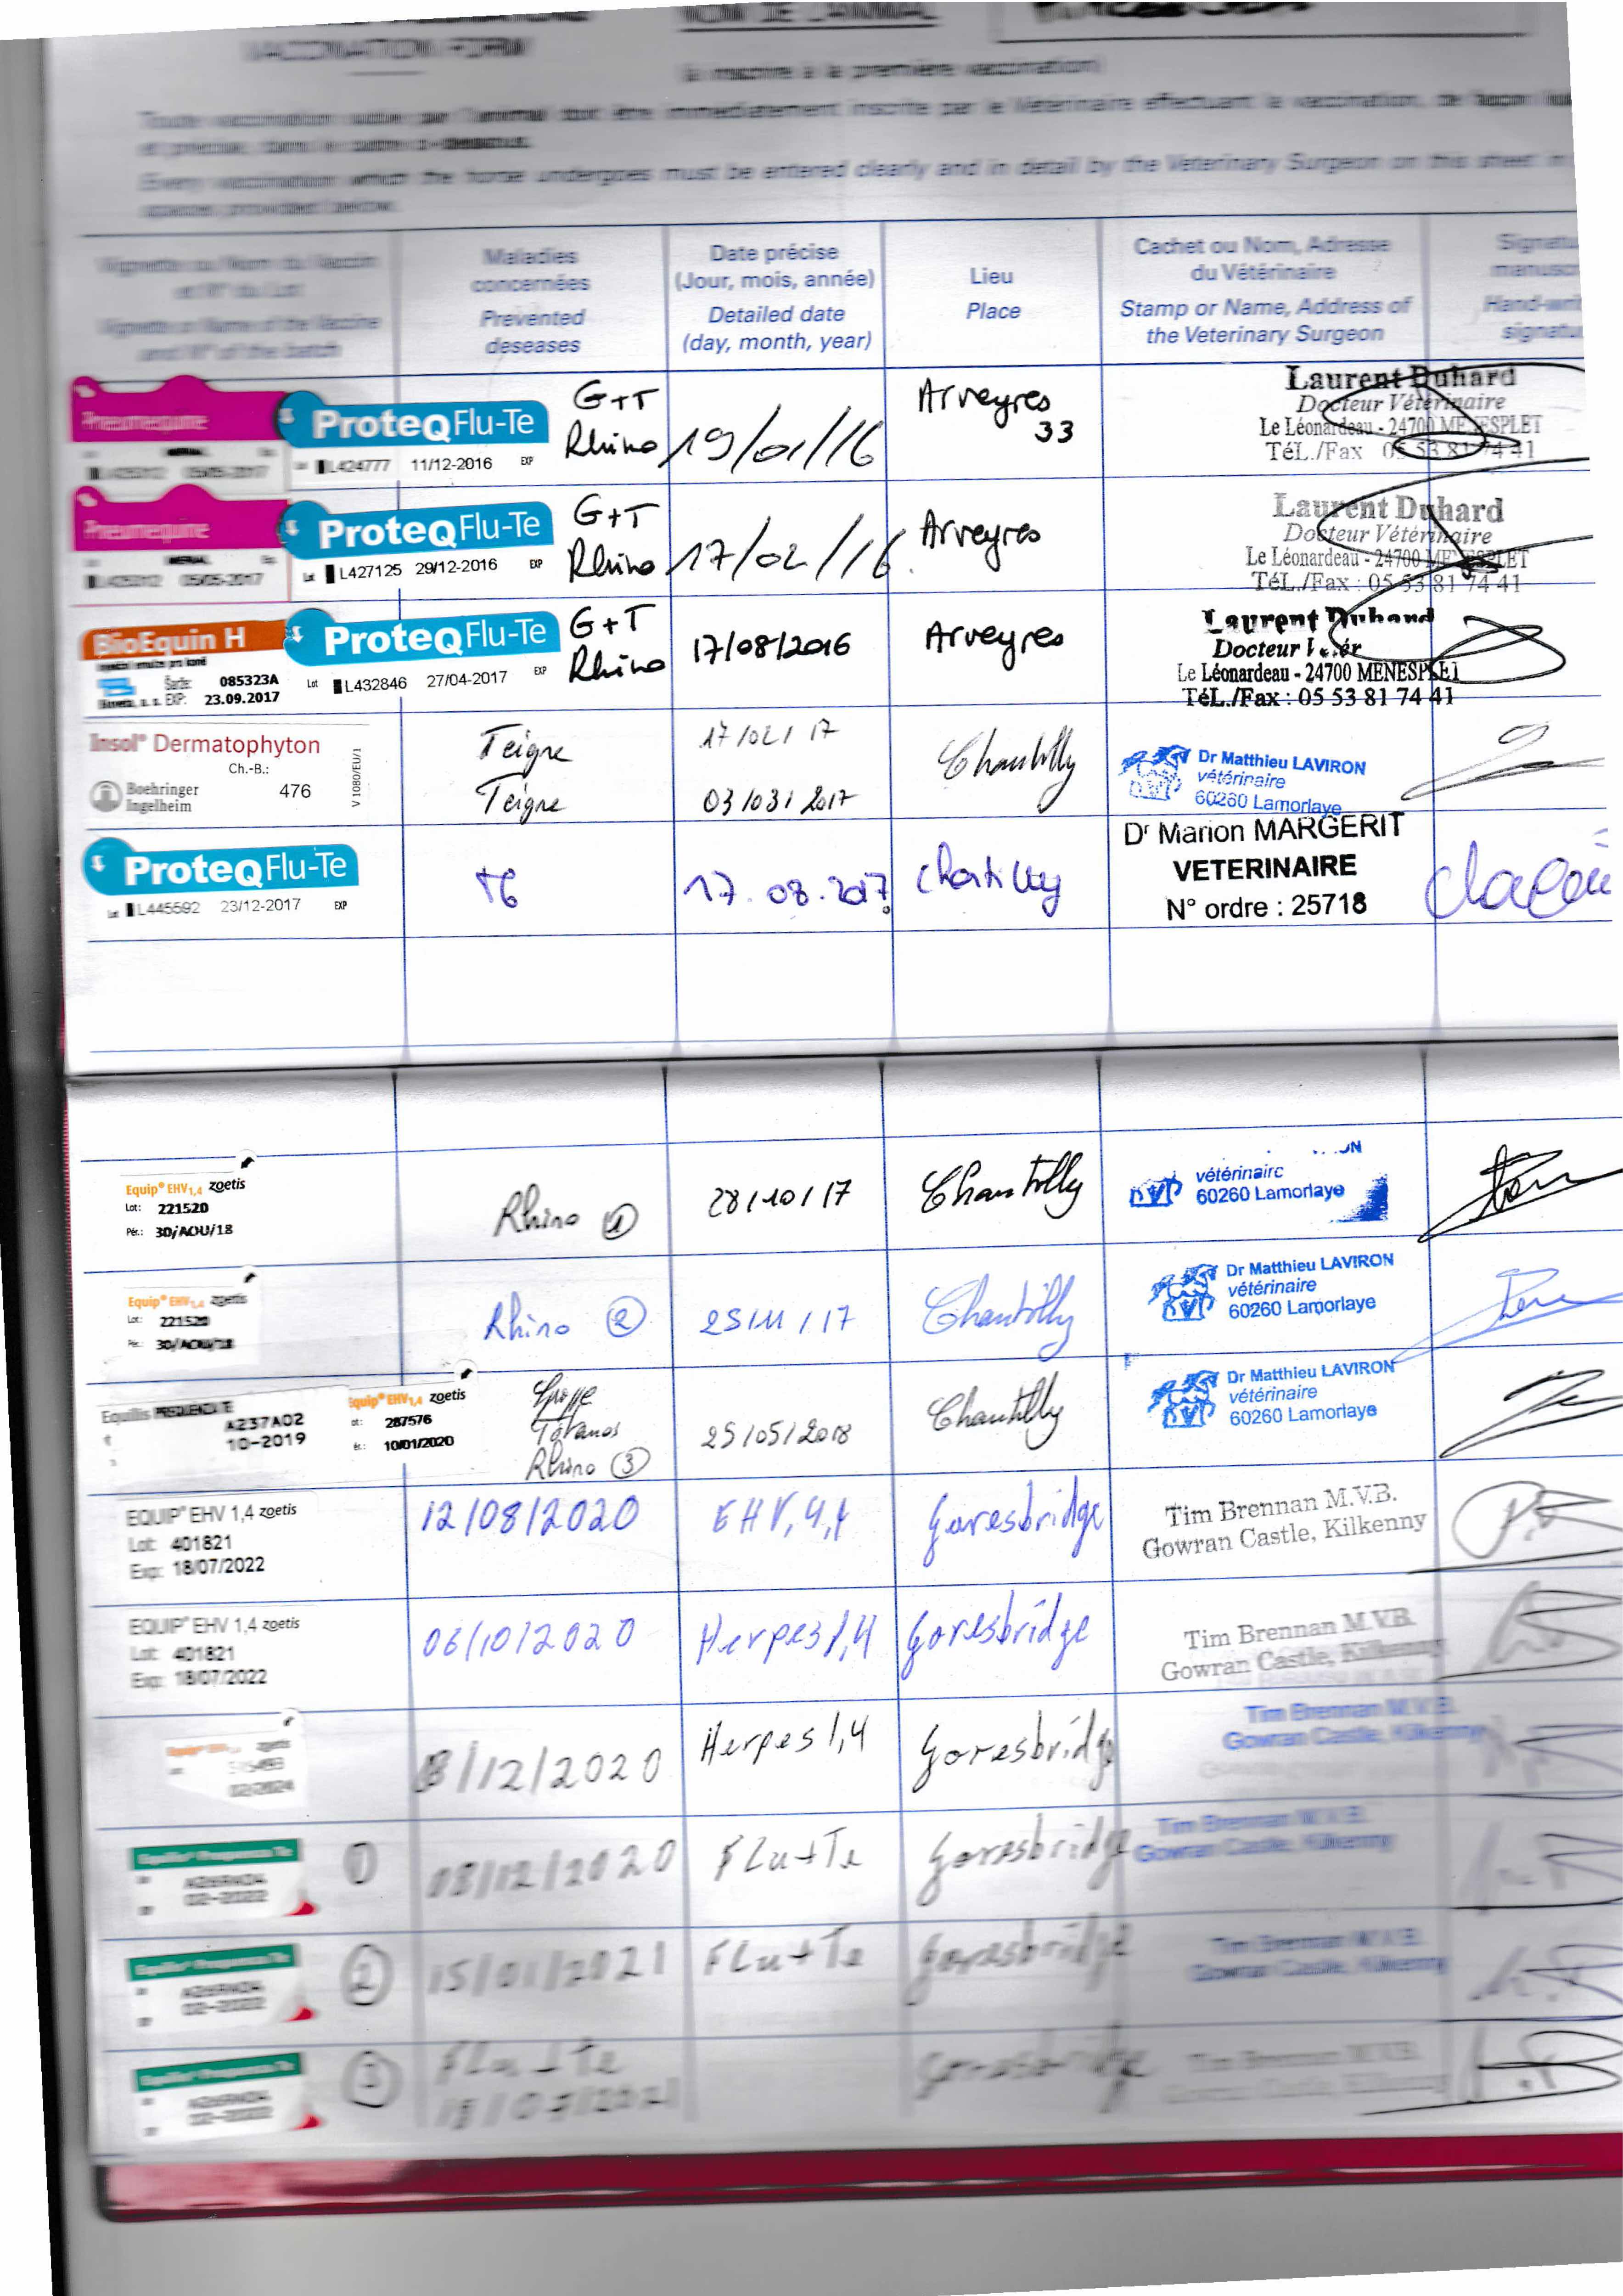 VACCINATION FORM
NOM DE L'ANIMAL
(à inscrire à la première vaccination)
Toute vaccination subie par l'animal doit être immédiatement inscrite par le Vétérinaire effectuant la vaccination, de façon
et précise, dans le cadre ci-dessous.
Every vaccination which the horse undergoes must be entered clearly and in detail by the Veterinary Surgeon on this sheet in
spaces provided below.
Vignette ou Nom du Vaccin
et N° du Lot
Vignette or Name of the Vaccine
and N° of the batch
Maladies
concernées
Prevented
deseases
Date précise
(Jour, mois, année)
Detailed date
(day, month, year)
Lieu
Place
Cachet ou Nom, Adresse
du Vétérinaire
Stamp or Name, Address of
the Veterinary Surgeon
Pneumequine
ProteqFlu-Te
L424777 11/12-2016 EXP
G+T
Rhino
19/01/16
Arveyres
33
Laurent Duhard
Docteur Vétérinaire
Le Léonardeau - 24700 MENESPLET
TéL./Fax 05 53 81 74 41
Pneumequine
05/05-2017
ProteqFlu-Te
Lot L427125 29/12-2016 EXP
G+T
Rhino
17/02/16
Arveyres
Laurent Duhard
Docteur Vétérinaire
Le Léonardeau - 24700 MENESPLET
TéL./Fax : 05 53 81 74 41
BioEquin H
085323A
EXP: 23.09.2017
ProteqFlu-Te
Lot L432846 27/04-2017 EXP
G+T
Rhino
17/08/2016
Arveyres
Laurent Duhard
Docteur
Le Léonardeau - 24700 MENESPLET
TéL./Fax : 05 53 81 74 41
Insol® Dermatophyton
Ch.-B.:
476
Boehringer
Ingelheim
V 1080/EU/1
Teigne
Teigne
17/02/17
03/03/2017
Chantilly
Dr Matthieu LAVIRON
vétérinaire
60260 Lamorlaye
ProteqFlu-Te
Lot L445592 23/12-2017 EXP
TG
17.08.2017
Chantilly
Dr Marion MARGERIT
VETERINAIRE
N° ordre : 25718
Equip® EHV1,4 zoetis
Lot: 221520
Pér.: 30/AOU/18
Rhino 1
28/10/17
Chantilly
vétérinaire
60260 Lamorlaye
Equip® EHV1,4 zoetis
Lot: 221520
Pér.: 30/AOU/18
Rhino 2
25/11/17
Chantilly
Dr Matthieu LAVIRON
vétérinaire
60260 Lamorlaye
Equilis PREQUENZA TE
A237A02
10-2019
Equip® EHV1,4 zoetis
287576
10/01/2020
Grippe
Tétanos
Rhino 3
25/05/2018
Chantilly
Dr Matthieu LAVIRON
vétérinaire
60260 Lamorlaye
EQUIP® EHV 1,4 zoetis
Lot: 401821
Exp: 18/07/2022
12/08/2020
EHV,4,1
Goresbridge
Tim Brennan M.V.B.
Gowran Castle, Kilkenny
EQUIP® EHV 1,4 zoetis
Lot: 401821
Exp: 18/07/2022
06/10/2020
Herpes 1,4
Goresbridge
Tim Brennan M.V.B.
Gowran Castle, Kilkenny
02/2024
8/12/2020
Herpes 1,4
Goresbridge
Tim Brennan M.V.B.
Gowran Castle, Kilkenny
Equilis Prequenza Te
02-2022
1
08/12/2020
Flu+Te
Goresbridge
Tim Brennan M.V.B.
Gowran Castle, Kilkenny
Equilis Prequenza Te
02-2022
2
15/01/2021
Flu+Te
Goresbridge
Tim Brennan M.V.B.
Gowran Castle, Kilkenny
Equilis Prequenza Te
02-2022
3
Flu+Te
Goresbridge
Tim Brennan M.V.B.
Gowran Castle, Kilkenny